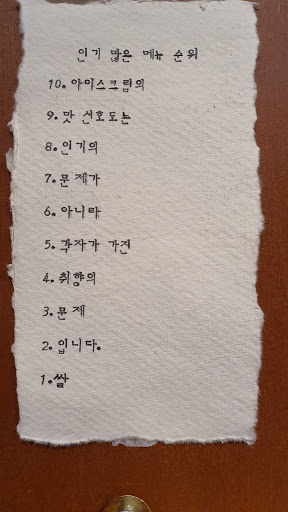 인기 많은 메뉴 순위
10. 아이스크림의
9. 맛 선호도는
8. 인기의
7. 문제가
6. 아니라
5. 각자가 가진
4. 취향의
3. 문제
2. 입니다.
1. 쌀